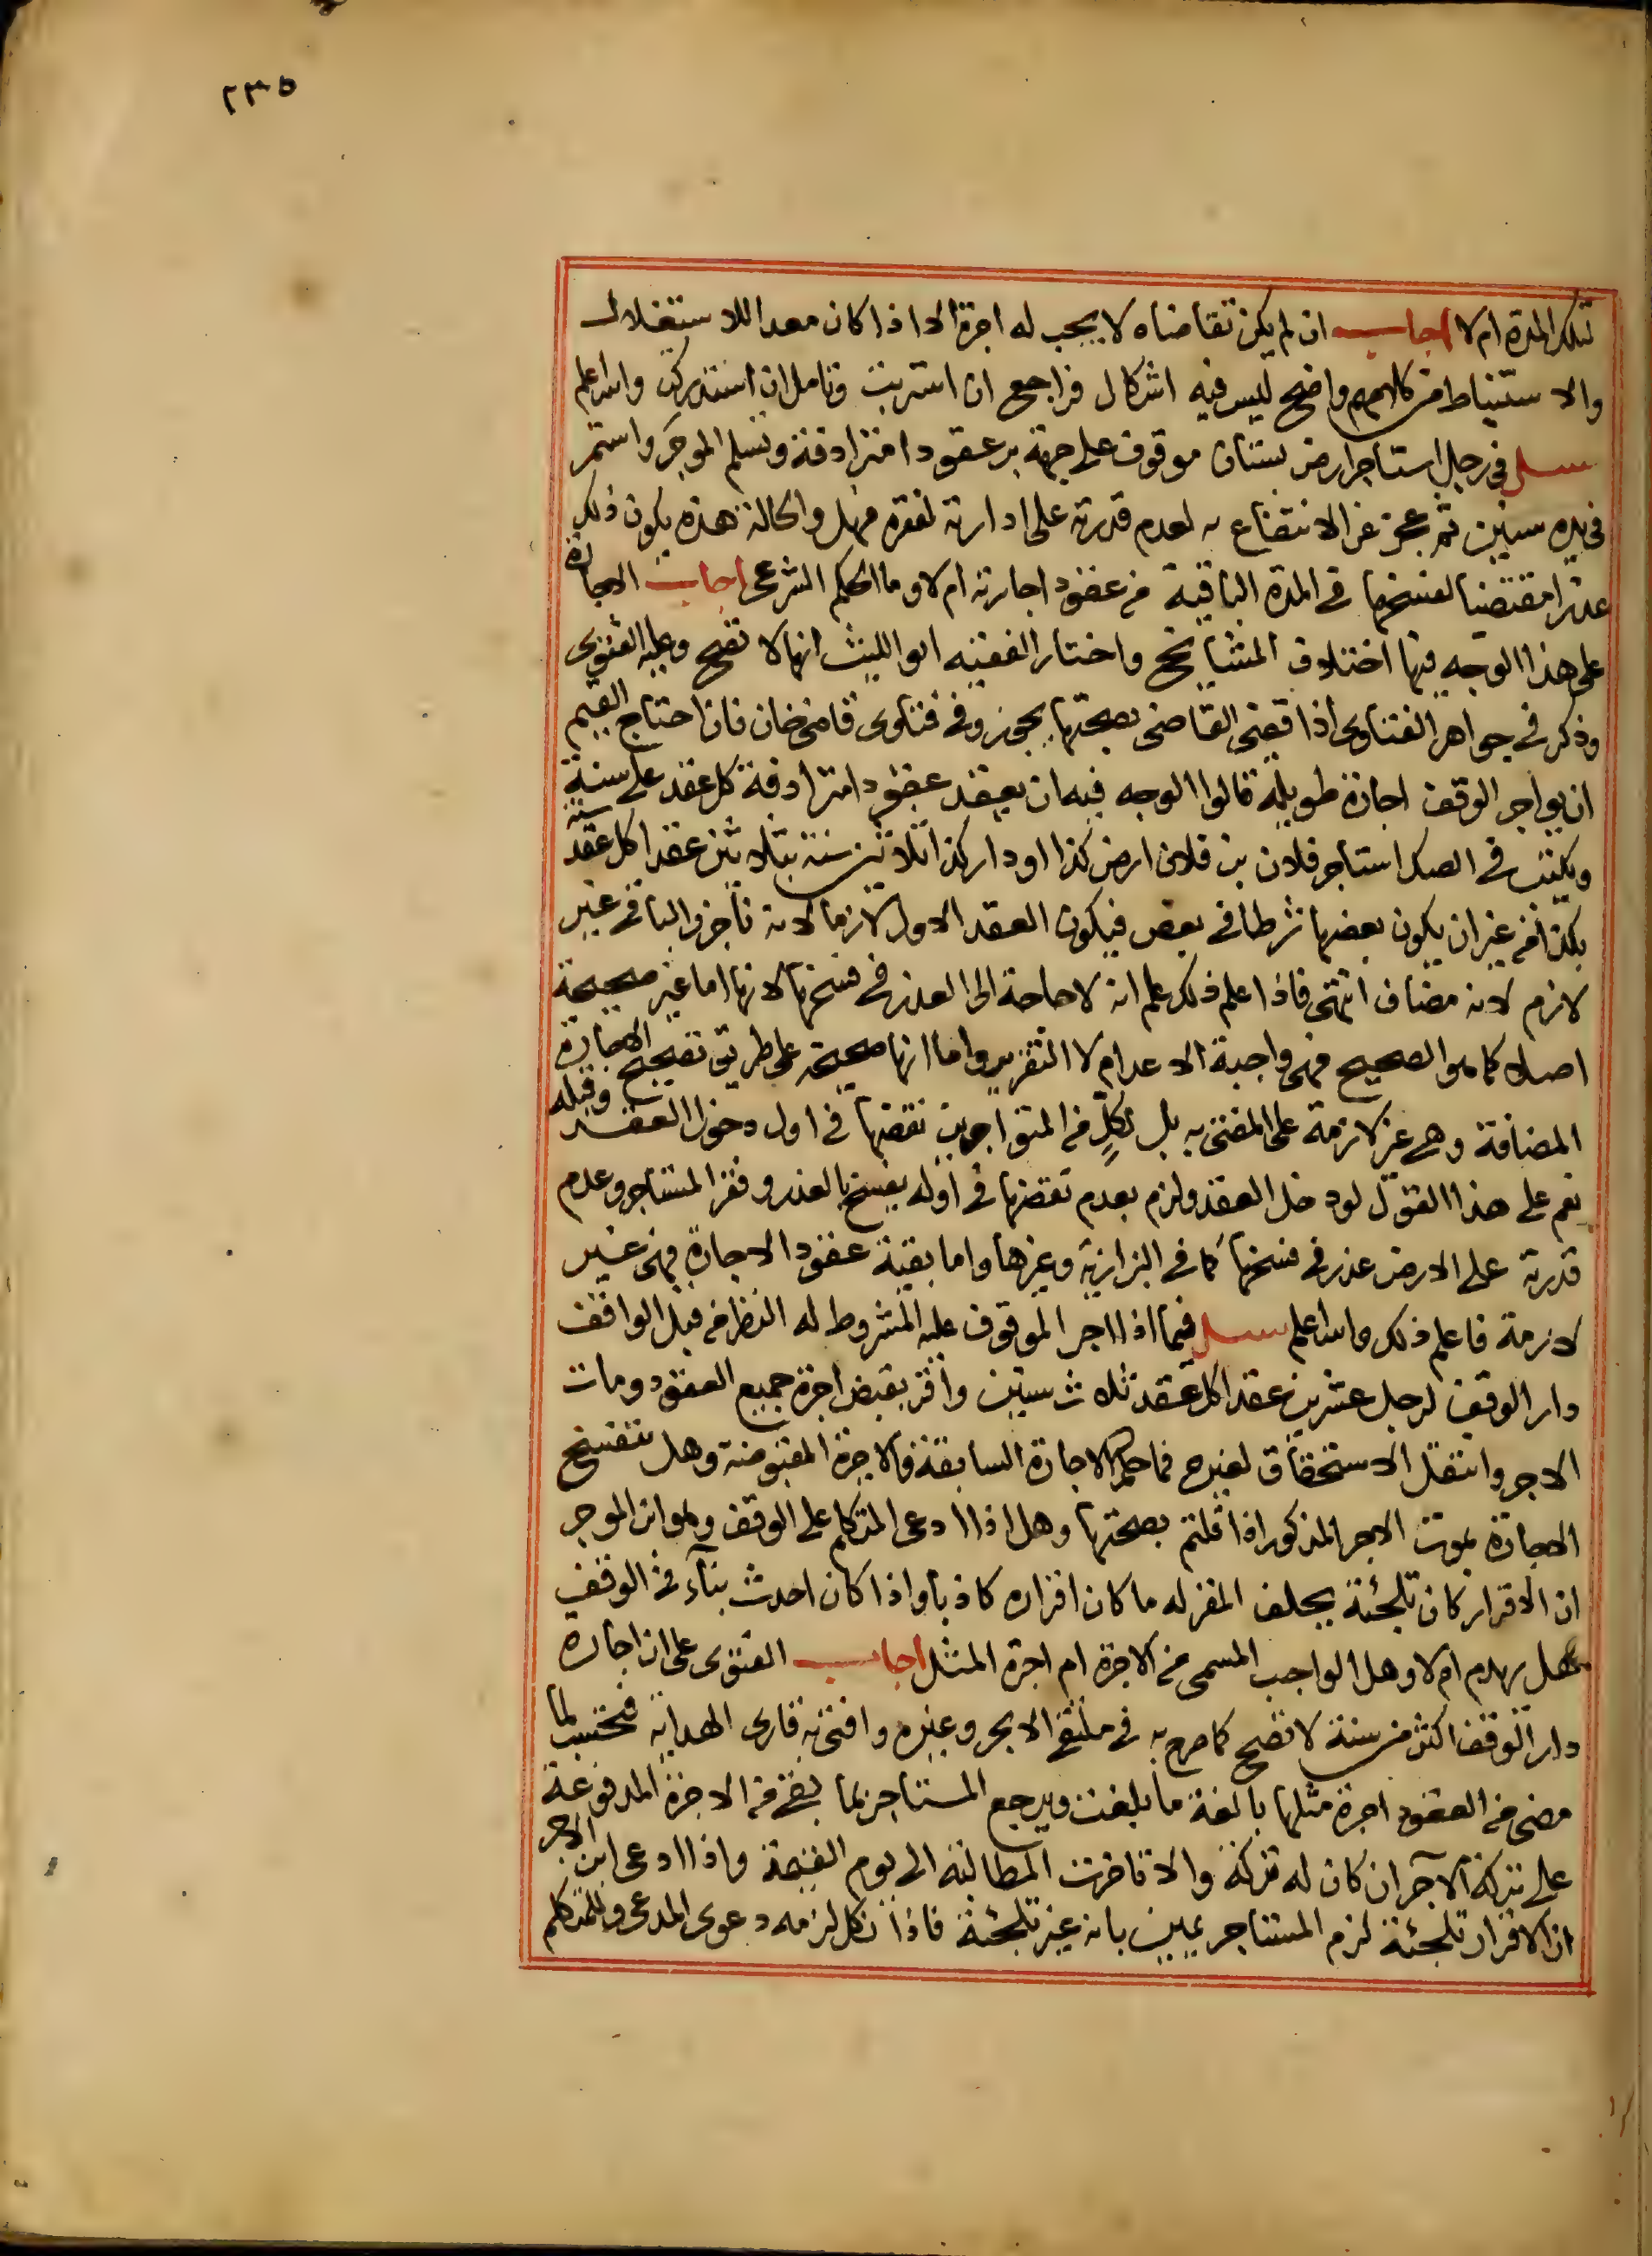 ٢٣٥
تلك المدة ام لا اجاب ان لم يكن تقاضاه لا يجب له اجرة الا اذا كان معدا للاستغلال
والاستنباط من كلامهم واضح ليس فيه اشكال فراجع ان استربت وتامل ان استدركت والله اعلم
سئل في رجل استاجر ارض بستان موقوف على جهة بر عقودا مترادفة وتسلم الموجر واستمر
في يده سنين ثم عجز عن الانتفاع به لعدم قدرته على ادارته لفقره فهل والحالة هذه يكون ذلك
عذرا مقتضيا لفسخها في المدة الباقية من عقود اجارته ام لا وما الحكم الشرعي اجاب الاجارة
على هذا الوجه فيها اختلاف المشايخ واختار الفقيه ابو الليث انها لا تصح وعليه الفتوى
وذكر في جواهر الفتاوى اذا قضى القاضي بصحتها يجوز وفي فتاوى قاضي خان فان احتاج القيم
ان يواجر الوقف اجارة طويلة قالوا الوجه فيه ان يعقد عقودا مترادفة كل عقد على سنة
ويكتب في الصك استاجر فلان بن فلان ارض كذا او دار كذا ثلاثين سنة بثلاثين عقدا كل عقد سنة
بكذا من غير ان يكون بعضها شرطا في بعض فيكون العقد الاول لازما لانه ناجز والباقي غير
لازم لانه مضاف انتهى فاذا علم ذلك علم انه لا حاجة الى العذر في فسخها لانها اما غير صحيحة
اصلا كما هو الصحيح فهي واجبة الاعدام لا التقرير واما انها صحيحة على طريق تصحيح الاجارة
المضافة وهي غير لازمة على المفتى به بل لكل من المتواجرين نقضها في اول دخول العقد وقبله
نعم على هذا القول لو دخل العقد ولزم بعدم نقضها في اوله يفسخ بالعذر وفقر المستاجر وعدم
قدرته على الارض عذر في فسخها كما في البزازية وغيرها واما بقية عقود الاجارة فهي غير
لازمة فاعلم ذلك والله اعلم سئل فيما اذا اجر الموقوف عليه المشروط له النظر من قبل الواقف
دار الوقف لرجل عشرين عقدا كل عقد ثلاث سنين واقر بقبض اجرة جميع العقود ومات
الاجر وانتقل الاستحقاق لغيره فما حكم الاجارة السابقة والاجرة المقبوضة وهل تنفسخ
الاجارة بموت الاجر المذكور اذا قلتم بصحتها وهل اذا ادعى المتكلم على الوقف وهو ابن الموجر
ان الاقرار كان تلجئة يحلف المقر له ما كان اقراره كاذبا واذا كان احدث بنآء في الوقف
هل يهدم ام لا وهل الواجب المسمى من الاجرة ام اجرة المثل اجاب الفتوى على ان اجارة
دار الوقف اكثر من سنة لا تصح كما صرح به في ملتقى الابحر وغيره وافتى به قارى الهداية فتحتسب لما
مضى من العقود اجرة مثلها بالغة ما بلغت ويرجع المستاجر بما بقي من الاجرة المدفوعة
على تركة الآجر ان كان له تركة والا تاخرت المطالبة الى يوم القيمة واذا ادعى ابن الاجر
ان الاقرار تلجئة لزم المستاجر يمين بانه غير تلجئة فاذا نكل لزمه دعوى المدعي وللمتكلم